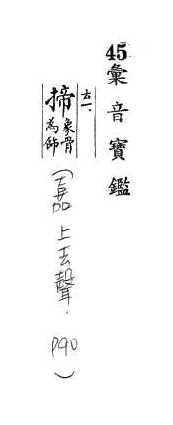 45彙音寶鑑
揥 象骨為飾
(嘉 上去聲. P90)